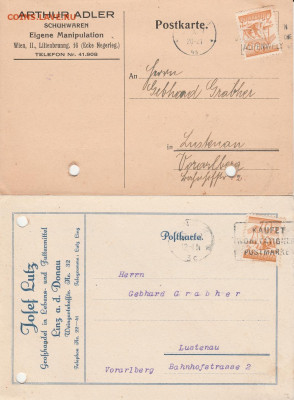 COINS.SU/NET.RU
ARTHUR ADLER
SCHUHWAREN
Eigene Manipulation
Wien, II., Lilienbrunng. 16 (Ecke Negerleg.)
Telephon Nr. 41.908
Postkarte.
Herrn
An Gebhard Grabher
in Lustenau
Vorarlberg
Bahnhofstr. 2
Josef Lutz
Großhandel in Lebens- und Futtermittel
Linz a. d. Donau
Telegramme: Lutz Linz
Postkarte.
KAUFET
WOHLTÄTIGKEITS
POSTMARKEN
Herrn
Gebhard Grabher
Lustenau
Vorarlberg Bahnhofstrasse 2